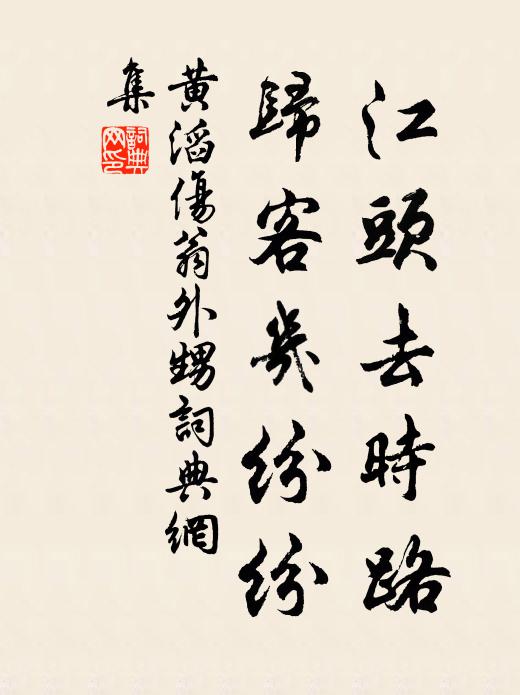 江頭去時路
歸客幾紛紛
黃滔傷翁外甥詞典網
集
詞典
网印